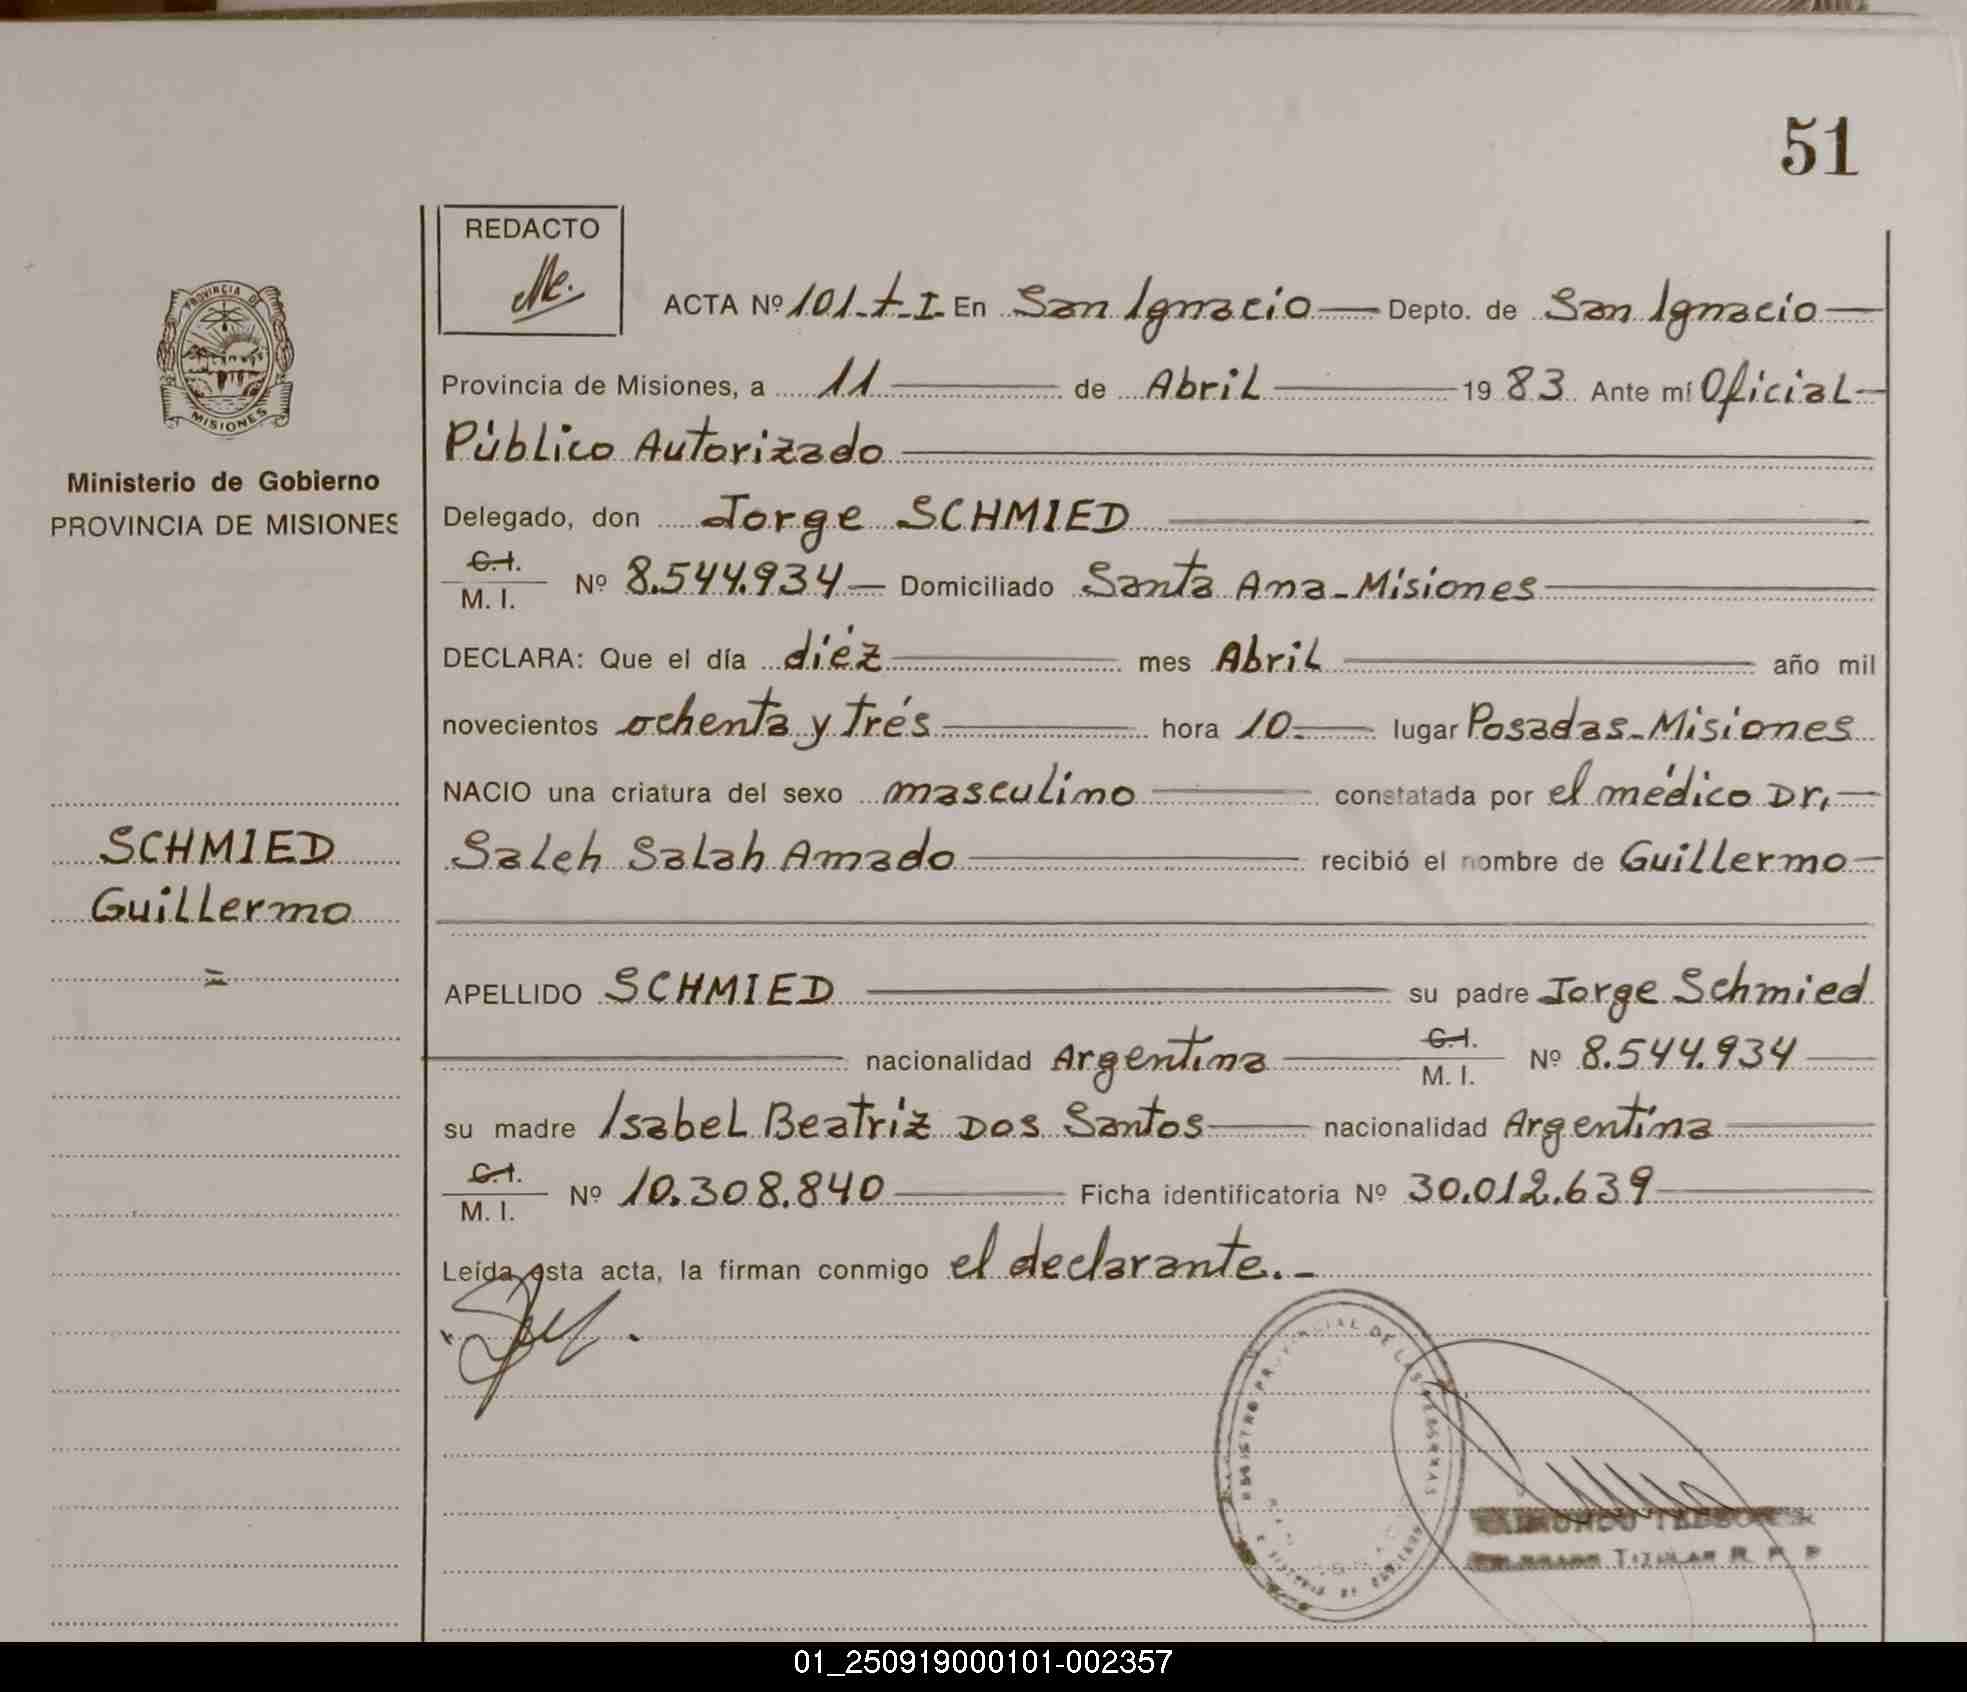 51
REDACTO
PROVINCIA DE
MISIONES
ACTA Nº 101-t-I- En San Ignacio Depto. de San Ignacio
Provincia de Misiones, a 11 de Abril 1983. Ante mí Oficial
Público Autorizado
Ministerio de Gobierno
PROVINCIA DE MISIONES
Delegado, don Jorge SCHMIED
C.I. M. I. Nº 8.544.934 Domiciliado Santa Ana-Misiones
DECLARA: Que el día diéz mes Abril año mil
novecientos ochenta y trés hora 10. lugar Posadas-Misiones
NACIO una criatura del sexo masculino constatada por el médico Dr.
SCHMIED
Guillermo
Saleh Salah Amado recibió el nombre de Guillermo
APELLIDO SCHMIED su padre Jorge Schmied
nacionalidad Argentina C.I. M. I. Nº 8.544.934
su madre Isabel Beatriz Dos Santos nacionalidad Argentina
C.I. M. I. Nº 10.308.840 Ficha identificatoria Nº 30.012.639
Leída esta acta, la firman conmigo el declarante.-
REGISTRO PROVINCIAL DE LAS PERSONAS
TITULAR R. P. P
01_250919000101-002357